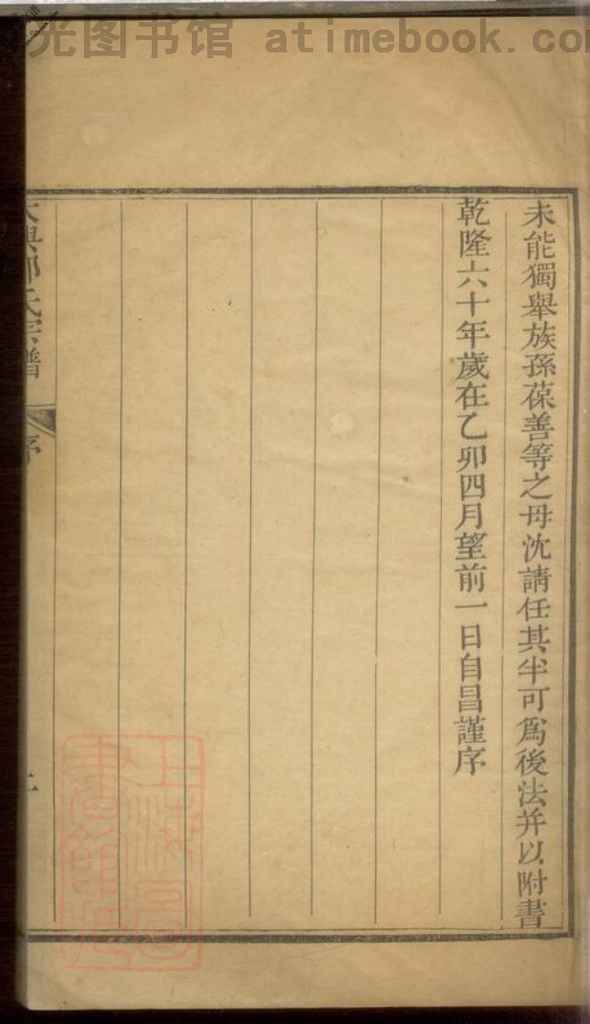 光图书馆 atimebook.co
未能獨舉族孫葆善等之母沈請任其半可爲後法并以附書
乾隆六十年歲在乙卯四月望前一日自昌謹序
氏宗譜
序
二